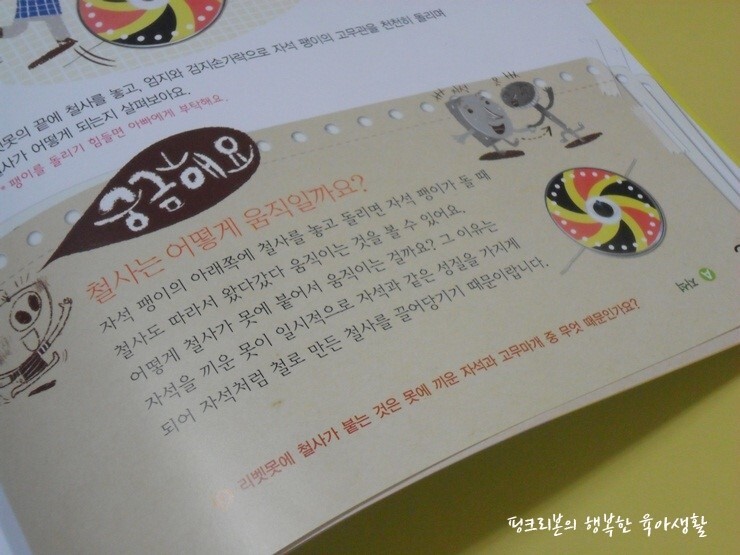 못의 끝에 철사를 놓고, 엄지와 검지손가락으로 자석 팽이의 고무관을 천천히 돌리며
철사가 어떻게 되는지 살펴보아요.
* 팽이를 돌리기 힘들면 아빠에게 부탁해요.
궁금해요
철사는 어떻게 움직일까요?
자석 팽이의 아래쪽에 철사를 놓고 돌리면 자석 팽이가 돌 때
철사도 따라서 왔다갔다 움직이는 것을 볼 수 있어요.
어떻게 철사가 못에 붙어서 움직이는 걸까요? 그 이유는
자석을 끼운 못이 일시적으로 자석과 같은 성질을 가지게
되어 자석처럼 철로 만든 철사를 끌어당기기 때문이랍니다.
리벳못에 철사가 붙는 것은 못에 끼운 자석과 고무마개 중 무엇 때문인가요?
A 자석
핑크리본의 행복한 육아생활